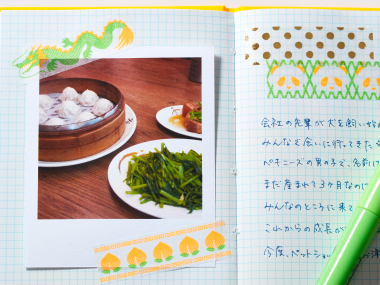 会社の先輩が犬を飼い始
みんなで会いに行ってきた
ペキニーズの男の子で、名前に
まだ産まれて3ヶ月なのに
みんなのところに来て
これからの成長が
今度、ペットショッ